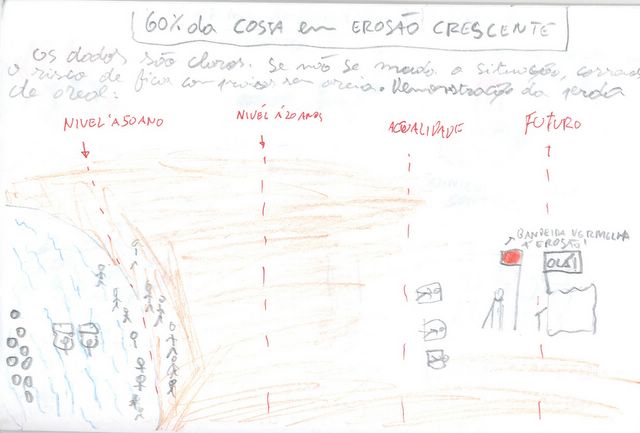 60% da COSTA em EROSÃO CRESCENTE
os dados são claros. Se não se muda a situação, corremos
o risco de ficar com praias sem areia. Demonstração da perda
de areal:
NIVEL À 50 ANO
NIVÉL À 20 ANOS
ACTUALIDADE
FUTURO
BANDEIRA VERMELHA
À EROSÃO!
OLÁ!